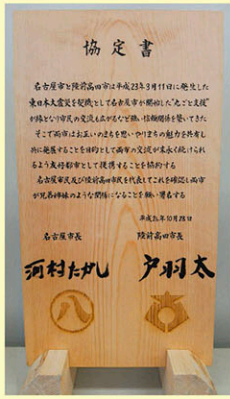 協定書
名古屋市と陸前高田市は平成23年3月11日に発生した
東日本大震災を契機として名古屋市が開始した"丸ごと支援"
が縁となり市民の交流も広がるなど篤い信頼関係を築いてきた
そこで両市はお互いのまちを思いやりまちの魅力を共有し
共に発展することを目的として両市の交流が末永く続けられ
るよう友好都市として提携することを協約する
名古屋市民及び陸前高田市民を代表してこれを確認し両市
が兄弟姉妹のような関係になることを願い署名する
平成26年10月28日
名古屋市長 陸前高田市長
河村たかし 戸羽太
八